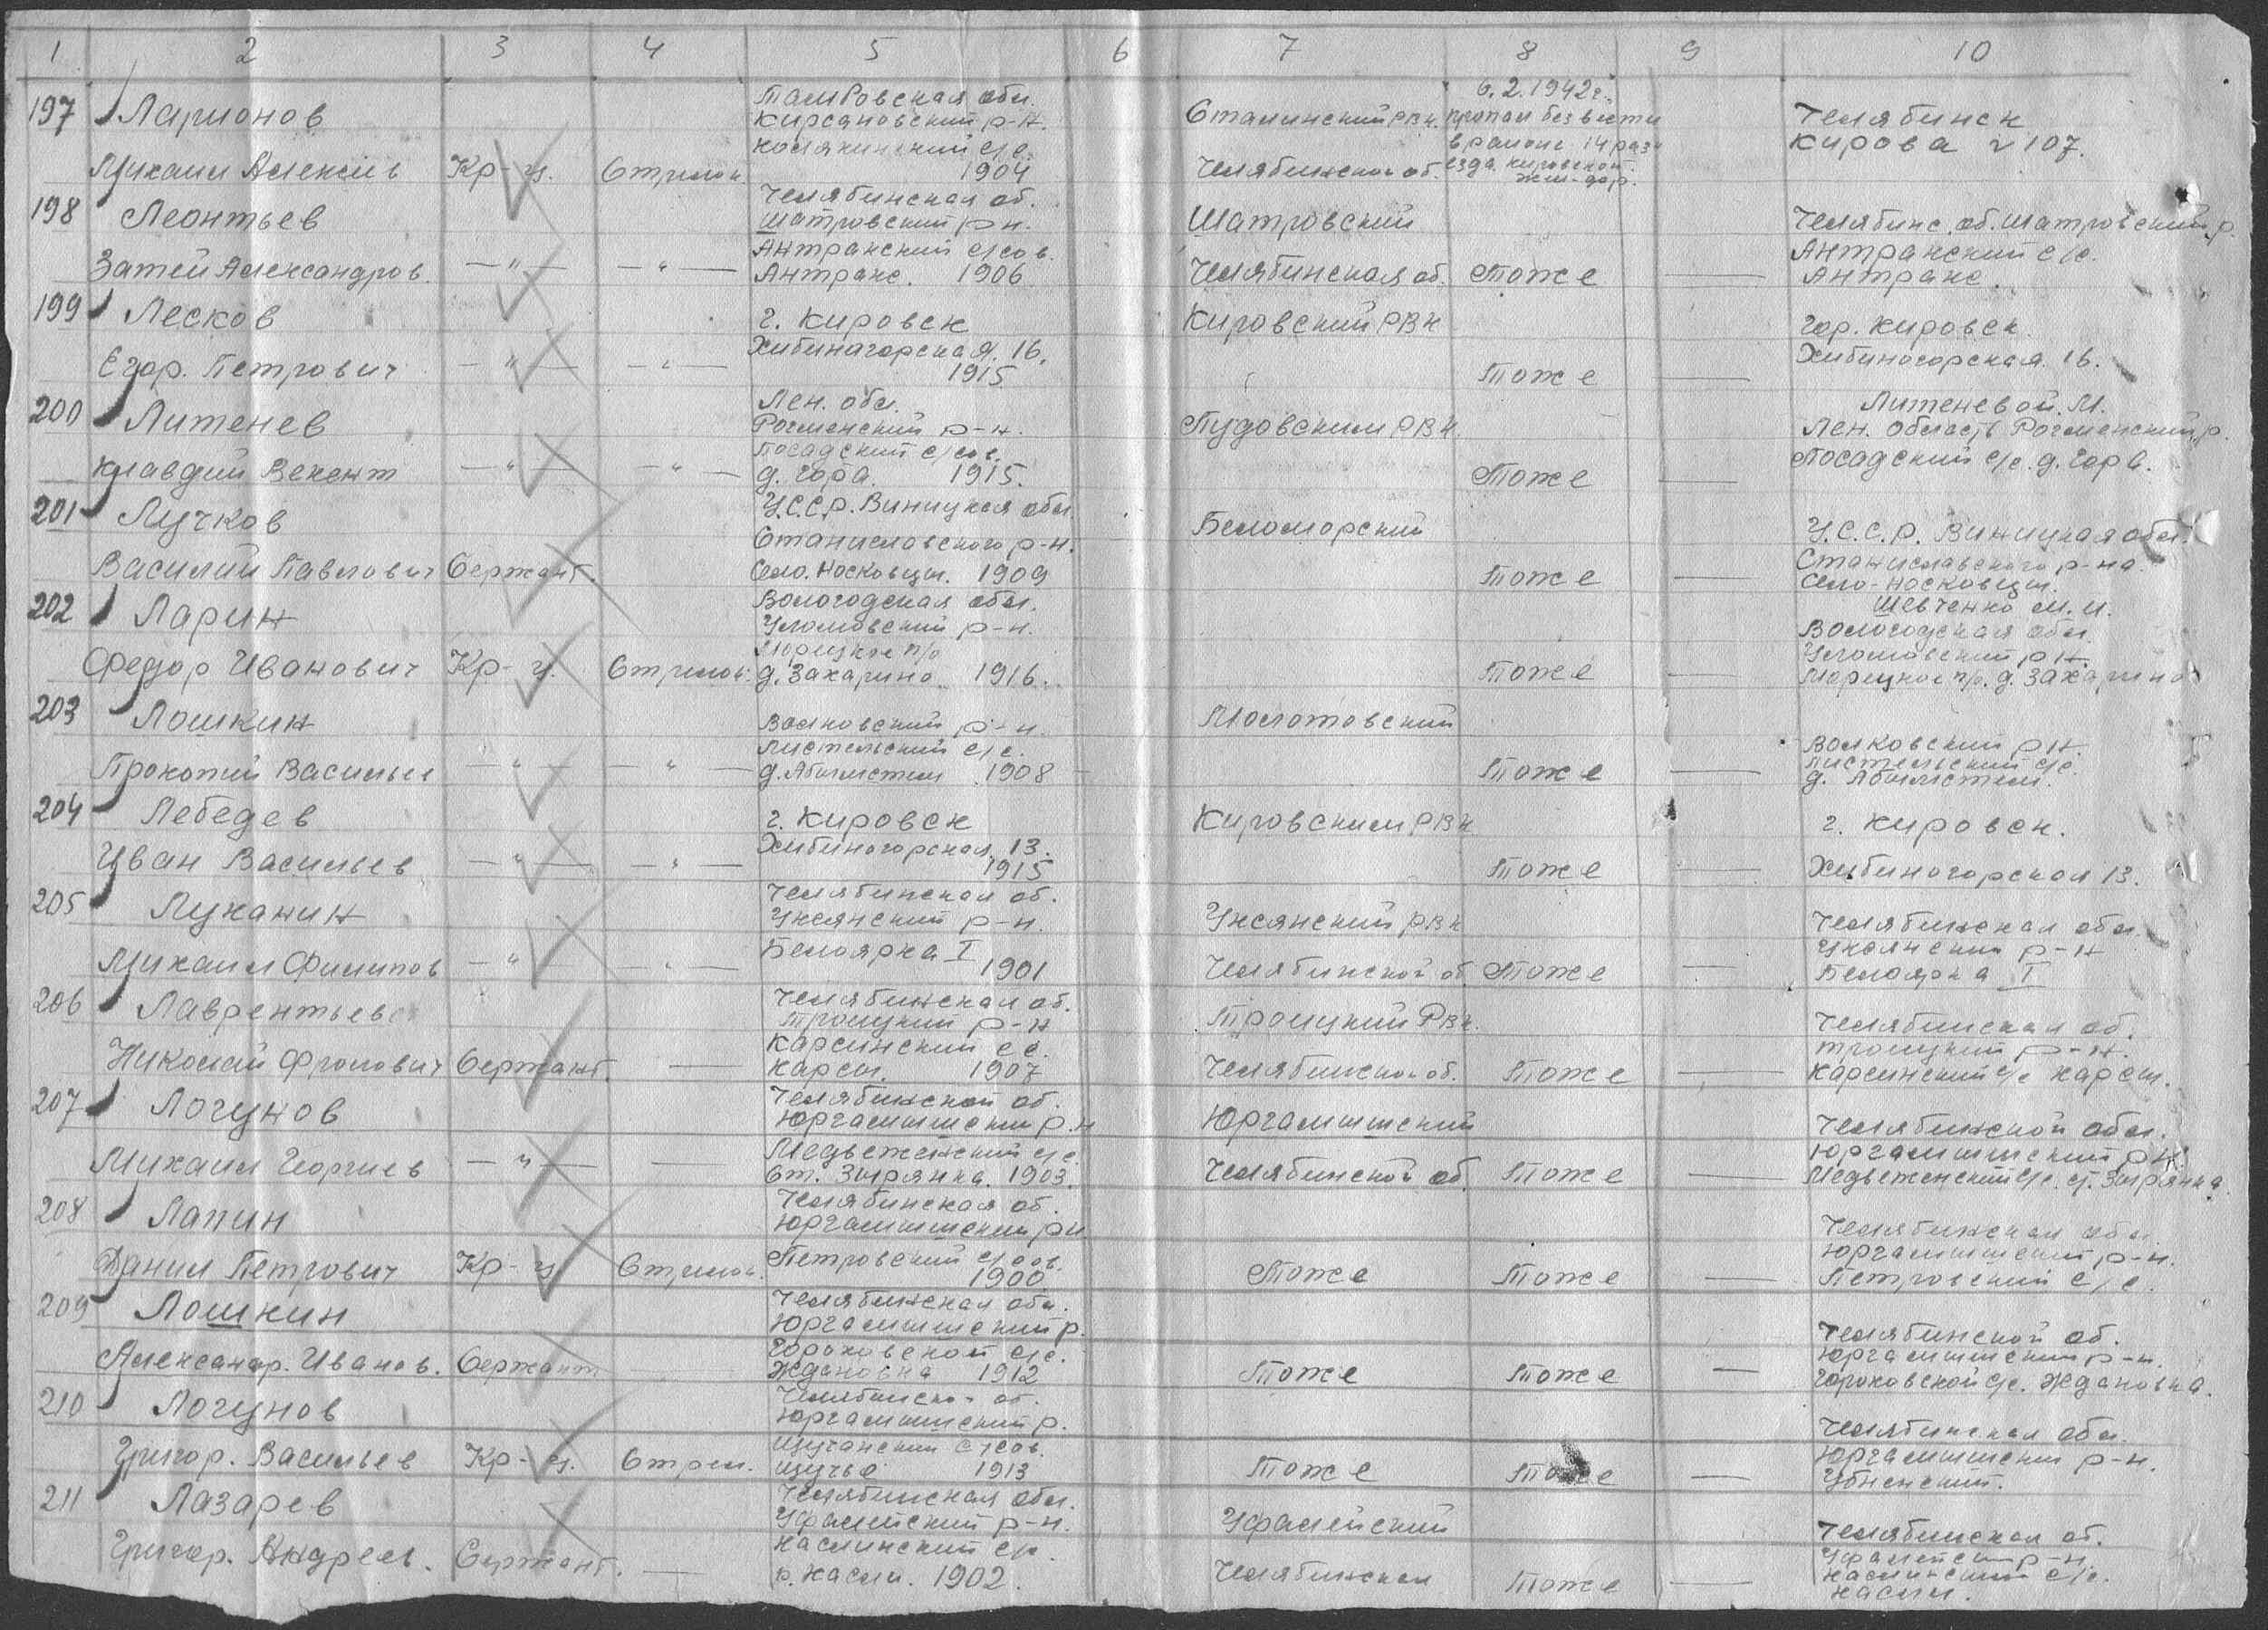 1 2 3 4 5 6 7 8 9 10
197 Ларионов
Михаил Алексеев Кр-ц. Стрелок.
Тамбовская обл.
Кирсановский р-н.
1904
Сталинский РВК.
Челябинской об.
6.2.1942г.
пропал без вести
в районе 14 разъ
езда Кировской
жел-дор.
Челябинск
Кирова № 107.
198 Леонтьев
Затей Александров. — " — — " —
Челябинская об.
Шатровский р-н.
Антракский с/сов.
Антракс. 1906
Шатровский
Челябинская об. Тоже —
Челябинс. об. Шатровский р.
Антракский с/с.
Антракс.
199 Лесков
Егор. Петрович — " — — " —
г. Кировск
Хибиногорская. 16.
1915
Кировский РВК
Тоже —
Гор. Кировск.
Хибиногорская 16.
200 Литенев
Клавдий Векент — " — — " —
Лен. обл.
Рогменский р-н.
Посадский с/сов.
д. Гора. 1915.
Пудовским РВК.
Тоже —
Литеневой. М.
Лен. область Рогменский р.
Посадский с/с. д. Гора.
201 Лучков
Василий Павлович Сержант.
У.С.С.Р. Виницкая обл.
Станиславского р-н.
Село. Носковцы. 1909
Беломорский
Тоже —
У.С.С.Р. Виницкая обл.
Станиславского р-на.
Село-Носковцы.
Шевченко М.И.
202 Ларин
Федор Иванович Кр-ц. Стрелок.
Вологодская обл.
Уломовский р-н.
Морецкое п/о
д. Захарино. 1916.
Тоже —
Вологодская обл.
Уломовский р-н.
Морецкое п/о. д. Захарино
203 Лошкин
Прокопий Васильев — " — — " —
Волковский р-н.
Листельский с/с.
1908
Молотовский
Тоже —
Волковский р-н.
Листельский с/с.
204 Лебедев
Иван Васильев — " — — " —
г. Кировск
Хибиногорская, 13.
1915
Кировским РВК
Тоже —
г. Кировск.
Хибиногорская 13.
205 Луканин
Михаил Филипов — " — — " —
Челябинская об.
Уксянский р-н.
Белоярка I
1901
Уксянский РВК
Челябинской об. Тоже —
Челябинская обл.
Уксянский р-н
Белоярка I
206 Лаврентьев
Николай Фролович Сержант. —
Челябинская об.
Троицкий р-н
Карсинский с с.
Карсы. 1907
Троицкий РВК.
Челябинской об. Тоже —
Челябинская об.
Троицкий р-н.
Карсинский с/с Карсы.
207 Логунов
Михаил Георгиев — " — —
Челябинской об.
Юргамышский р.н
Медвеженский с/с.
Ст. Зырянка. 1903.
Юргамышский
Челябинской об. Тоже —
Челябинской обл.
Юргамышский р-н.
Медвеженский с/с. ст. Зырянка.
208 Лапин
Данил Петрович Кр-ц. Стрелок.
Челябинская об.
Юргамышский рн
Петровский с/сов.
1900
Тоже Тоже —
Челябинская обл.
Юргамышский р-н.
Петровский с/с.
209 Лошкин
Александр. Иванов. Сержант
Челябинская обл.
Юргамышский р.
Гороховской с/с.
Ждановка 1912
Тоже Тоже —
Челябинской об.
Юргамышский р-н.
Гороховской с/с. Ждановка.
210 Логунов
Григор. Васильев Кр-ц. Стрел.
Челябинской об.
Юргамышский р.
Щучанский с/сов.
Щучье 1913
Тоже Тоже —
Челябинская обл.
Юргамышский р-н.
211 Лазарев
Григор. Андреев. Сержант. —
Челябинская обл.
Уфалейский р-н.
Каслинский с/с.
р. Касли. 1902.
Уфалейский
Челябинская Тоже —
Челябинская об.
Уфалейский р-н.
Каслинский с/с.
Касли.